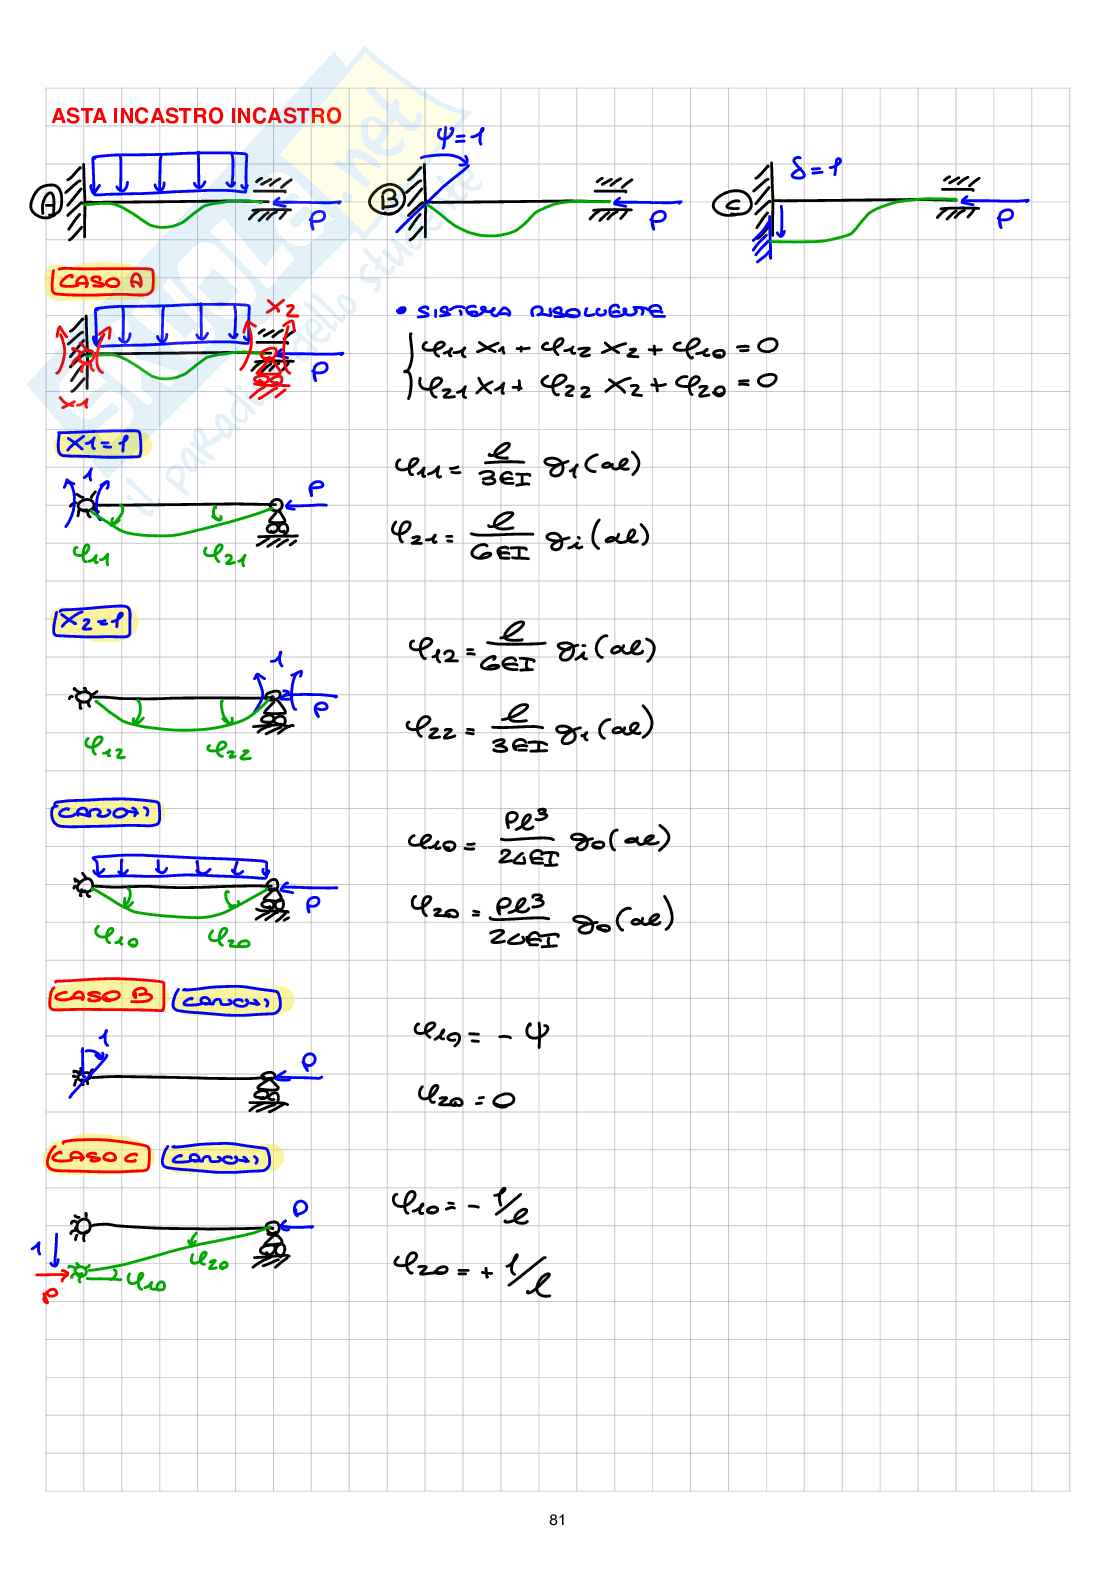 ASTA INCASTRO INCASTRO
A P
B ψ=1 P
C δ=1 P
CASO A
X1 X2 P
• SISTEMA RISOLVENTE
φ11 X1 + φ12 X2 + φ10 = 0
φ21 X1 + φ22 X2 + φ20 = 0
X1=1
1 P
φ11 φ21
φ11 = l/3EI g1(αl)
φ21 = l/6EI gi(αl)
X2=1
1 P
φ12 φ22
φ12 = l/6EI gi(αl)
φ22 = l/3EI g1(αl)
CARICHI
P
φ10 φ20
φ10 = Pl³/24EI g0(αl)
φ20 = Pl³/24EI g0(αl)
CASO B CARICHI
1 P
φ10 = - ψ
φ20 = 0
CASO C CARICHI
P
1
P
φ10 φ20
φ10 = - 1/l
φ20 = + 1/l
81